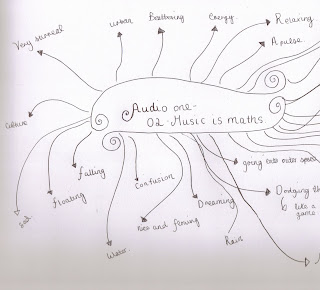 Very surreal
urban
Energy.
Relaxing.
A pulse.
Culture
Audio one-
02-Music is maths
falling
floating
sad.
Confusion
Water.
and
Dreaming
Rain
going into outer
Dodging
like a
game